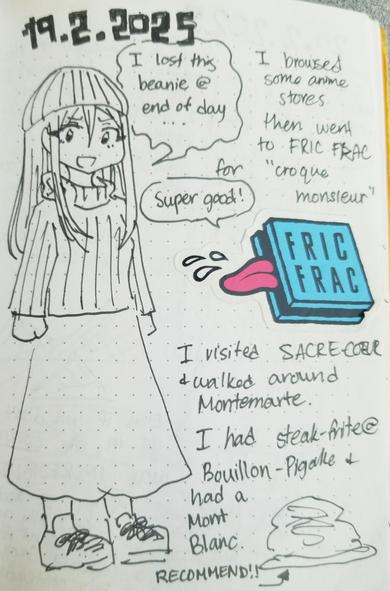 19.2.2025
I lost this
beanie @
end of day
....
I broused
some anime
stores
then went
to FRIC FRAC
for "croque
monsieur"
Super good!
FRIC
FRAC
I visited SACRE-COEUR
& walked around
Montemarte.
I had steak-frite @
Bouillon-Pigalle &
had a
Mont
Blanc.
RECOMMEND!!